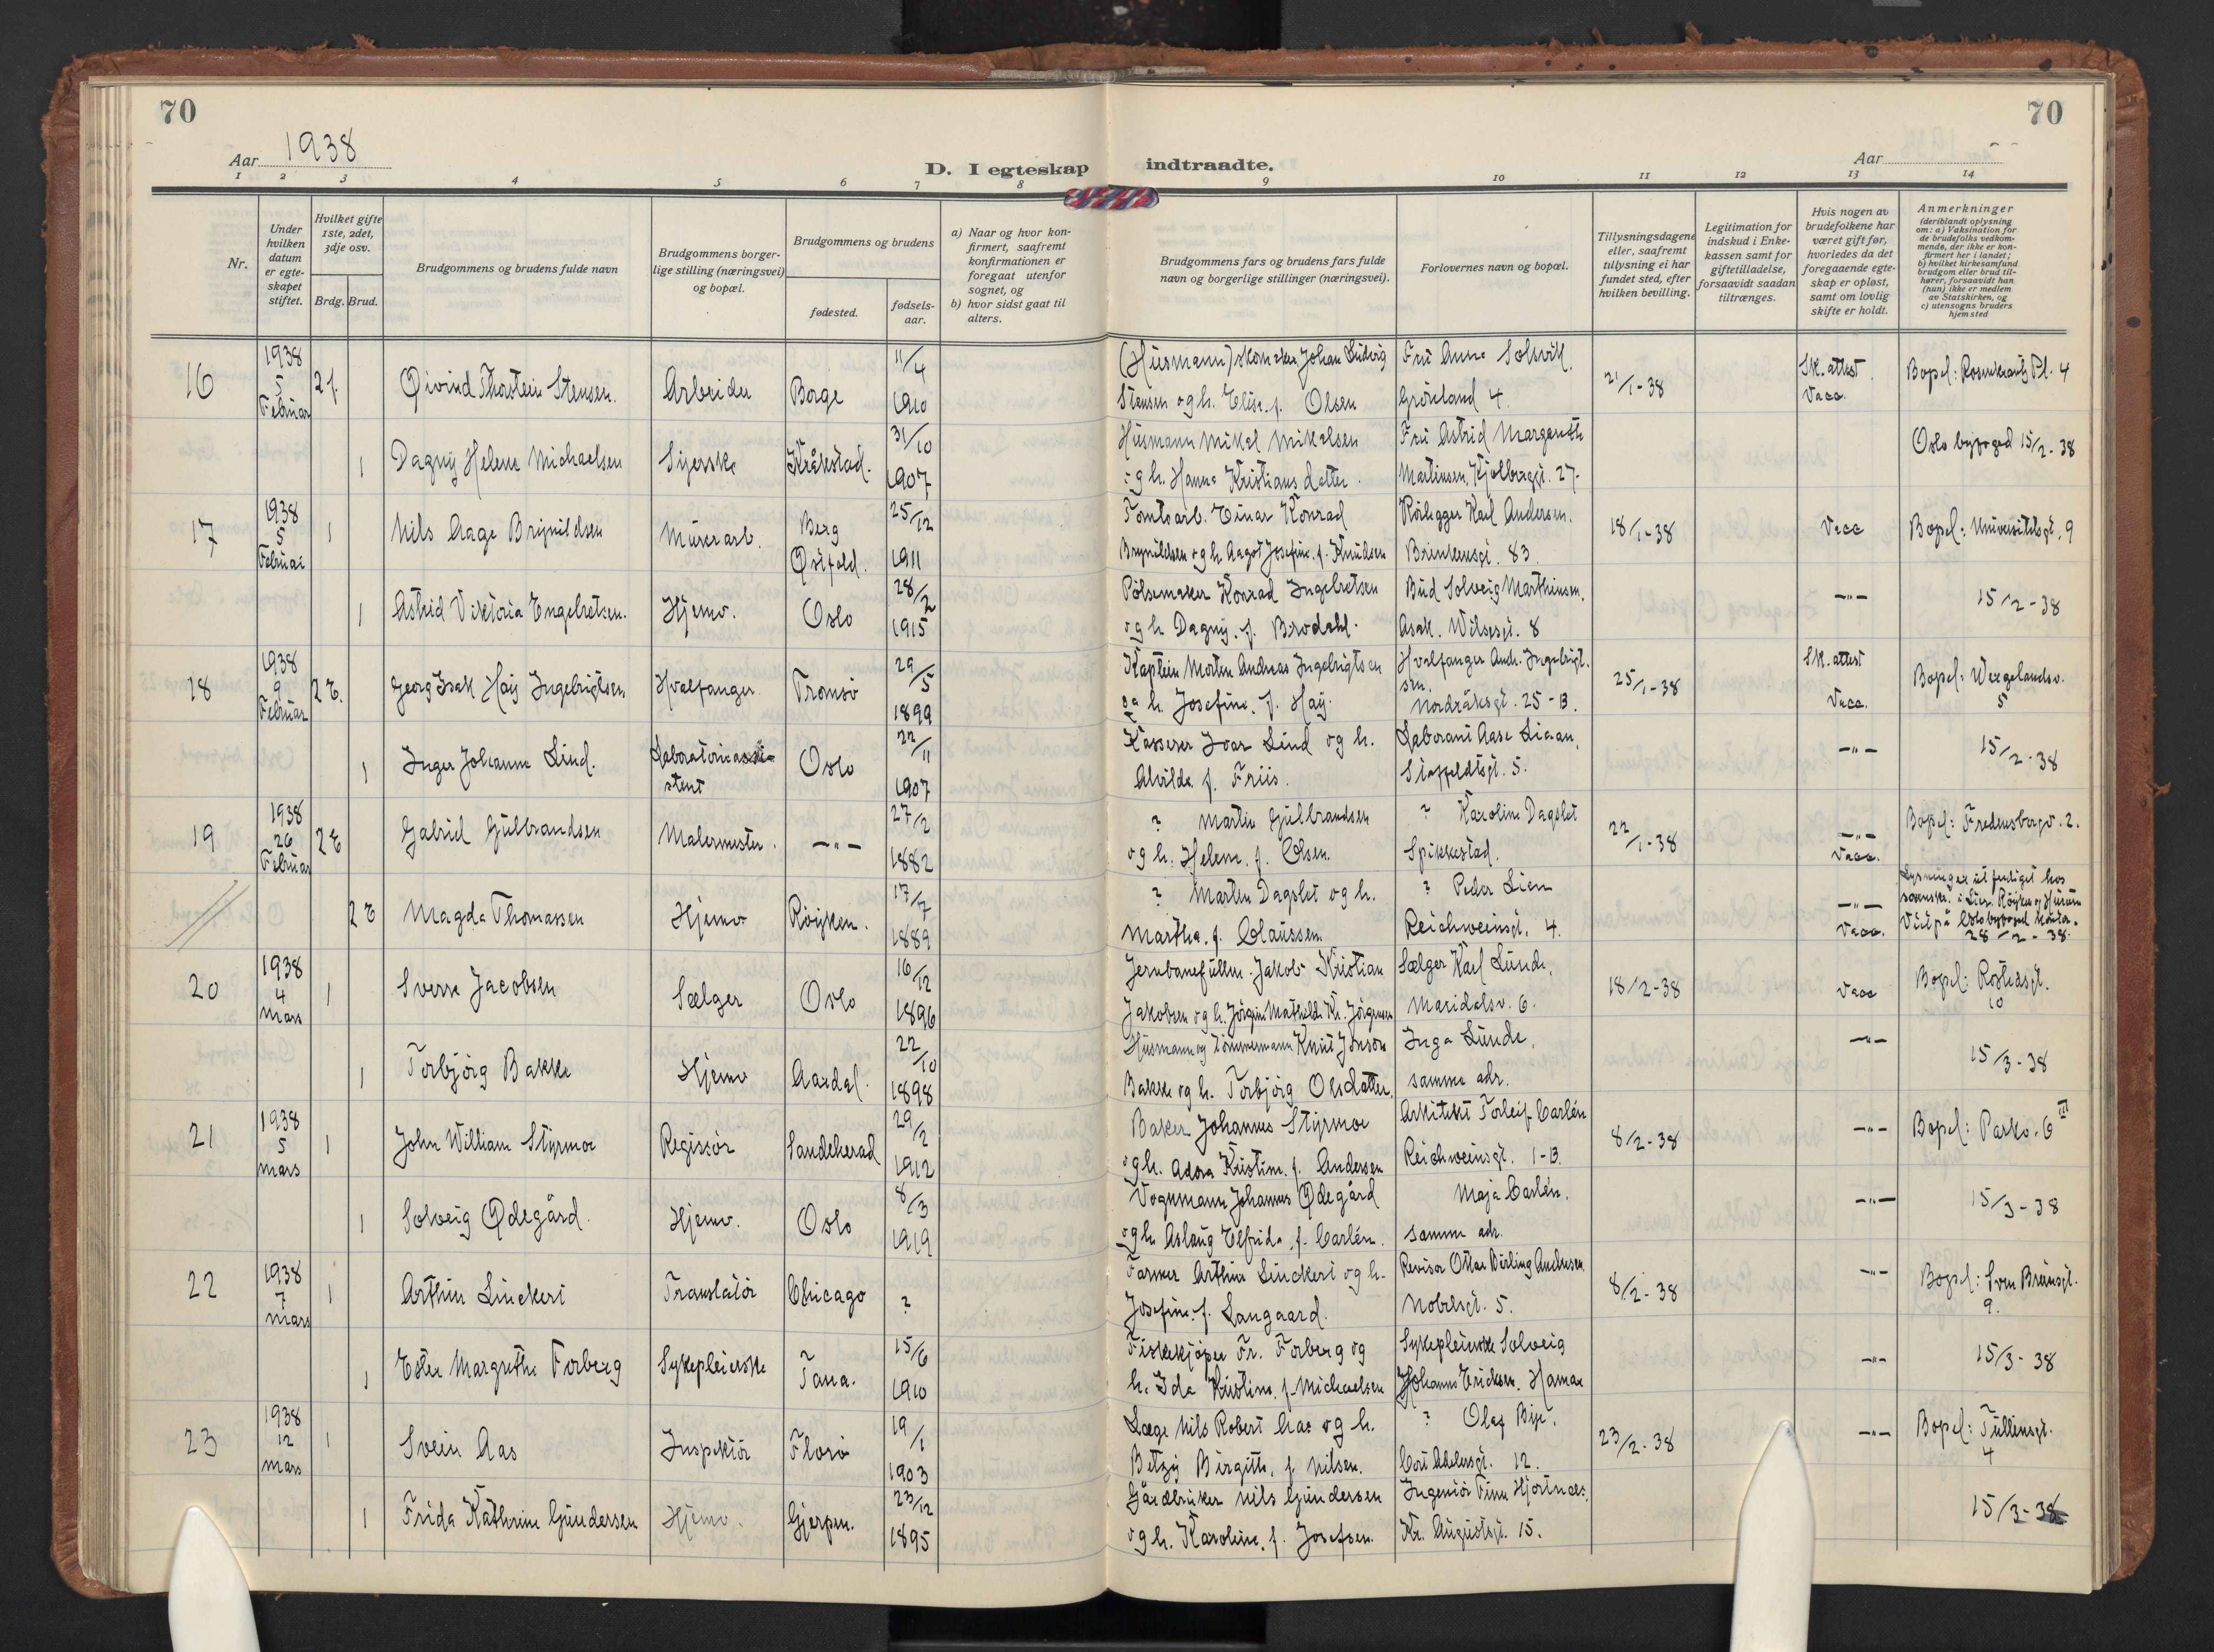 70
70
Aar 1938
Aar
D. I egteskap indtraadte.
1 2 3 4 5 6 7 8 9 10 11 12 13 14
Nr.
Under hvilken datum er egteskapet stiftet.
Hvilket gifte 1ste, 2det, 3dje osv.
Brdg. Brud.
Brudgommens og brudens fulde navn
Brudgommens borgerlige stilling (næringsvei) og bopæl.
Brudgommens og brudens
fødested.
fødselsaar.
a) Naar og hvor konfirmert, saafremt konfirmationen er foregaat utenfor sognet, og
b) hvor sidst gaat til alters.
Brudgommens fars og brudens fars fulde navn og borgerlige stillinger (næringsvei).
Forlovernes navn og bopæl.
Tillysningsdagene eller, saafremt tillysning ei har fundet sted, efter hvilken bevilling.
Legitimation for indskud i Enkekassen samt for giftetilladelse, forsaavidt saadan tiltrænges.
Hvis nogen av brudefolkene har været gift før, hvorledes da det foregaaende egteskap er opløst, samt om lovlig skifte er holdt.
Anmerkninger
(deriblandt oplysning om: a) Vaksination for de brudefolks vedkommende, der ikke er konfirmert her i landet; b) hvilket kirkesamfund brudgom eller brud tilhører, forsaavidt han (hun) ikke er medlem av Statskirken, og c) utensogns bruders hjemsted
16 1938 5 Februar 2 f. Øivind Thorstein Stensen. Arbeider Borge 11/4 1910 (Husmann) skomaker Johan Ludvig Stensen og h. Elise. f. Olsen Fru Anna Solsvik. Grönland 4. 21/1-38 Sk. attest. Vacc. Bopel: Rosenkrantz Pl. 4
1 Dagny Helene Michaelsen Syerske Kråkstad. 31/10 1907 Husmann Mikal Mikalsen og h. Hanna Kristiansdatter. Fru Astrid Margareth Martinsen, Kjølberggt. 27. Oslo byfoged 15/2-38
17 1938 5 Februar 1 Nils Aage Brynildsen Murerarb. Berg Østfold. 25/12 1911 Tomtearb. Einar Konrad Brynildsen og h. Aagot Josefine. f. Knudsen Rörlegger Karl Andersen. Brinkensgt. 83. 18/1-38 Vacc Bopel: Universitetsgt. 9
1 Astrid Viktoria Engelretsen. Hjemv. Oslo 28/2 1915 Pölsemaker Konrad Ingebretsen og h. Dagny. f. Brodahl. Bud Solveig Marthinsen. Asak. Wilsesgt. 8 -"- 15/2-38
18 1938 9 Februar 2 E. Georg Isak Høy Ingebrigtsen Hvalfanger. Tromsö 29/5 1899 Kaptein Morten Andreas Ingebrigtsen og h. Josefine. f. Høy. Hvalfanger Andr. Ingebrigtsen. Nordråksgt. 25-B. 25/1-38 Sk. attest Vacc. Bopel: Wergelandsv. 5
1 Inger Johanne Lind. Laboratorieassistent Oslo 22/11 1907 Kasserer Ivar Lind og h. Alvilde. f. Friis. Laborant Aase Liaan, Staffeldtsgt. 5. -"- 15/2-38
19 1938 26 Februar 2 E Gabriel Gulbrandsen Malermester. -"- 27/2 1882 ? Martin Gulbrandsen og h. Helene. f. Olsen. ? Karoline Dagslet Spikkestad. 22/1-38 -"- Vacc. Bopel: Fredensborgv. 2.
2 E Magda Thomassen Hjemv Röyken. 17/7 1889 ? Marten Dagslet og h. Martha. f. Claussen. ? Peder Lien Reichweinsgt. 4. -"- Vacc. Lysninger utferdiget hos sorenskr. i Lier, Röyken og Hurum Viet på Oslo byfoged kontor. 28/2-38.
20 1938 4 Mars 1 Sverre Jacobsen Sælger Oslo 16/12 1896 Jernbanefullm. Jakob Kristian Jakobsen og h. Jörgine Mathilde Kr. Jörgensen Sælger Karl Lunde, Maridalsv. 6. 18/2-38 Vacc Bopel: Rostedsgt. 10
1 Torbjörg Bakke Hjemv Aardal. 22/10 1898 Husmann og tömmermann Knut Jonson Bakke og h. Torbjörg Olsdatter. Inga Lunde, samme adr. -"- 15/3-38
21 1938 5 mars 1 John William Styrmoe Regissör Sandeherad 29/2 1912 Baker Johannes Styrmoe og h. Adora Kristine. f. Andersen Arkitekt Torleif Carlén Reichweinsgt. 1-B. 8/2-38 -"- Bopel: Parkv. 6 III
1 Solveig Ødegård. Hjemv. Oslo 8/3 1919 Vognmann Johannes Ødegård og h. Aslaug Elfrida. f. Carlén. Maja Carlén. samme adr. -"- 15/3-38
22 1938 7 mars 1 Arthur Linckert Translatör Chicago ? Farmer Arthur Linckert og h. Josefine. f. Langaard. Revisor Ottar Birling Andersen. Nobelsgt. 5. 8/2-38 -"- Bopel: Sven Brunsgt. 9.
1 Ester Margrethe Forberg Sykepleierske Tana. 15/6 1910 Fiskekjöper Fr. Forberg og h. Ida Kristine. f. Michaelsen Sykepleierske Solveig Johanne Ericksen. Hamar -"- 15/3-38
23 1938 12 mars 1 Svein Aas Inspektör Florö 19/1 1903 Læge Nils Robert Aas og h. Betzy Birgitte. f. Nilsen. ? Olaf Bye. Cort Adelersgt. 12. 23/2-38 -"- Bopel: Tullinsgt. 4
1 Frida Kathrine Gundersen Hjemv. Gjerpen. 23/12 1895 Gårdbruker Nils Gundersen og h. Karoline. f. Josefsen. Ingeniör Finn Hjortnæs. Kr. Augustsgt. 15. 15/3-38